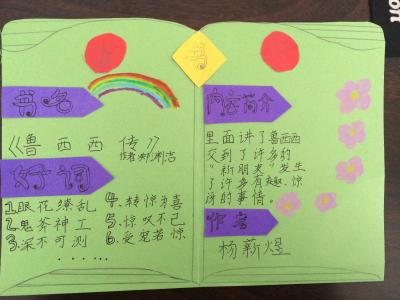 书
书名
《鲁西西传》
作者:郑渊洁
好词
1.眼花缭乱
2.鬼斧神工
3.深不可测
4.转惊为喜
5.惊叹不已
6.受宠若惊
......
内容简介
里面讲了鲁西西
交到了许多的
“新朋友”发生
了许多有趣、惊
讶的事情。
作者
杨薪煜